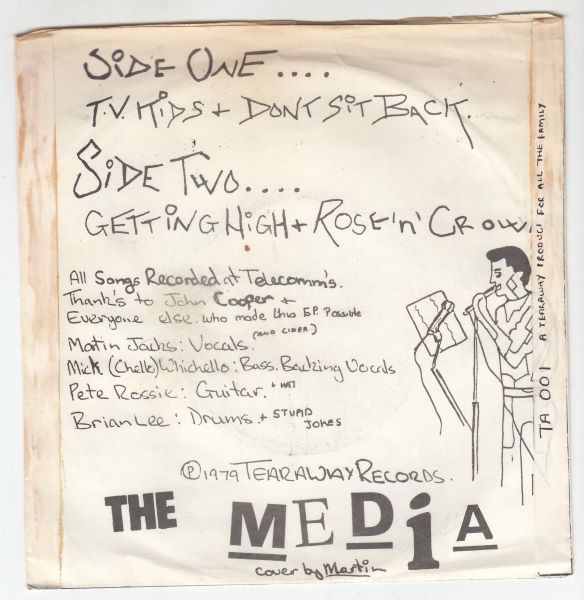 SiDE ONE....
T.V. KiDS + DONT SiT BACK.
SiDE TWO....
GETTiNG HiGH + ROSE 'n' CROWN
All Songs Recorded at Telecomm's.
Thank's to John Cooper +
Everyone else who made this E.P. Possible
(AND CIDER)
Martin Jacks: Vocals.
Mick (Chello) Whichello: Bass. Backing Vocals
Pete Rossie: Guitar. + HAT
Brian Lee: Drums. + STUPID
JOKES
℗1979 TEARAWAY RECORDS.
THE MEDiA
cover by Martin
TA 001 A TEARAWAY PRODUCT FOR ALL THE FAMILY